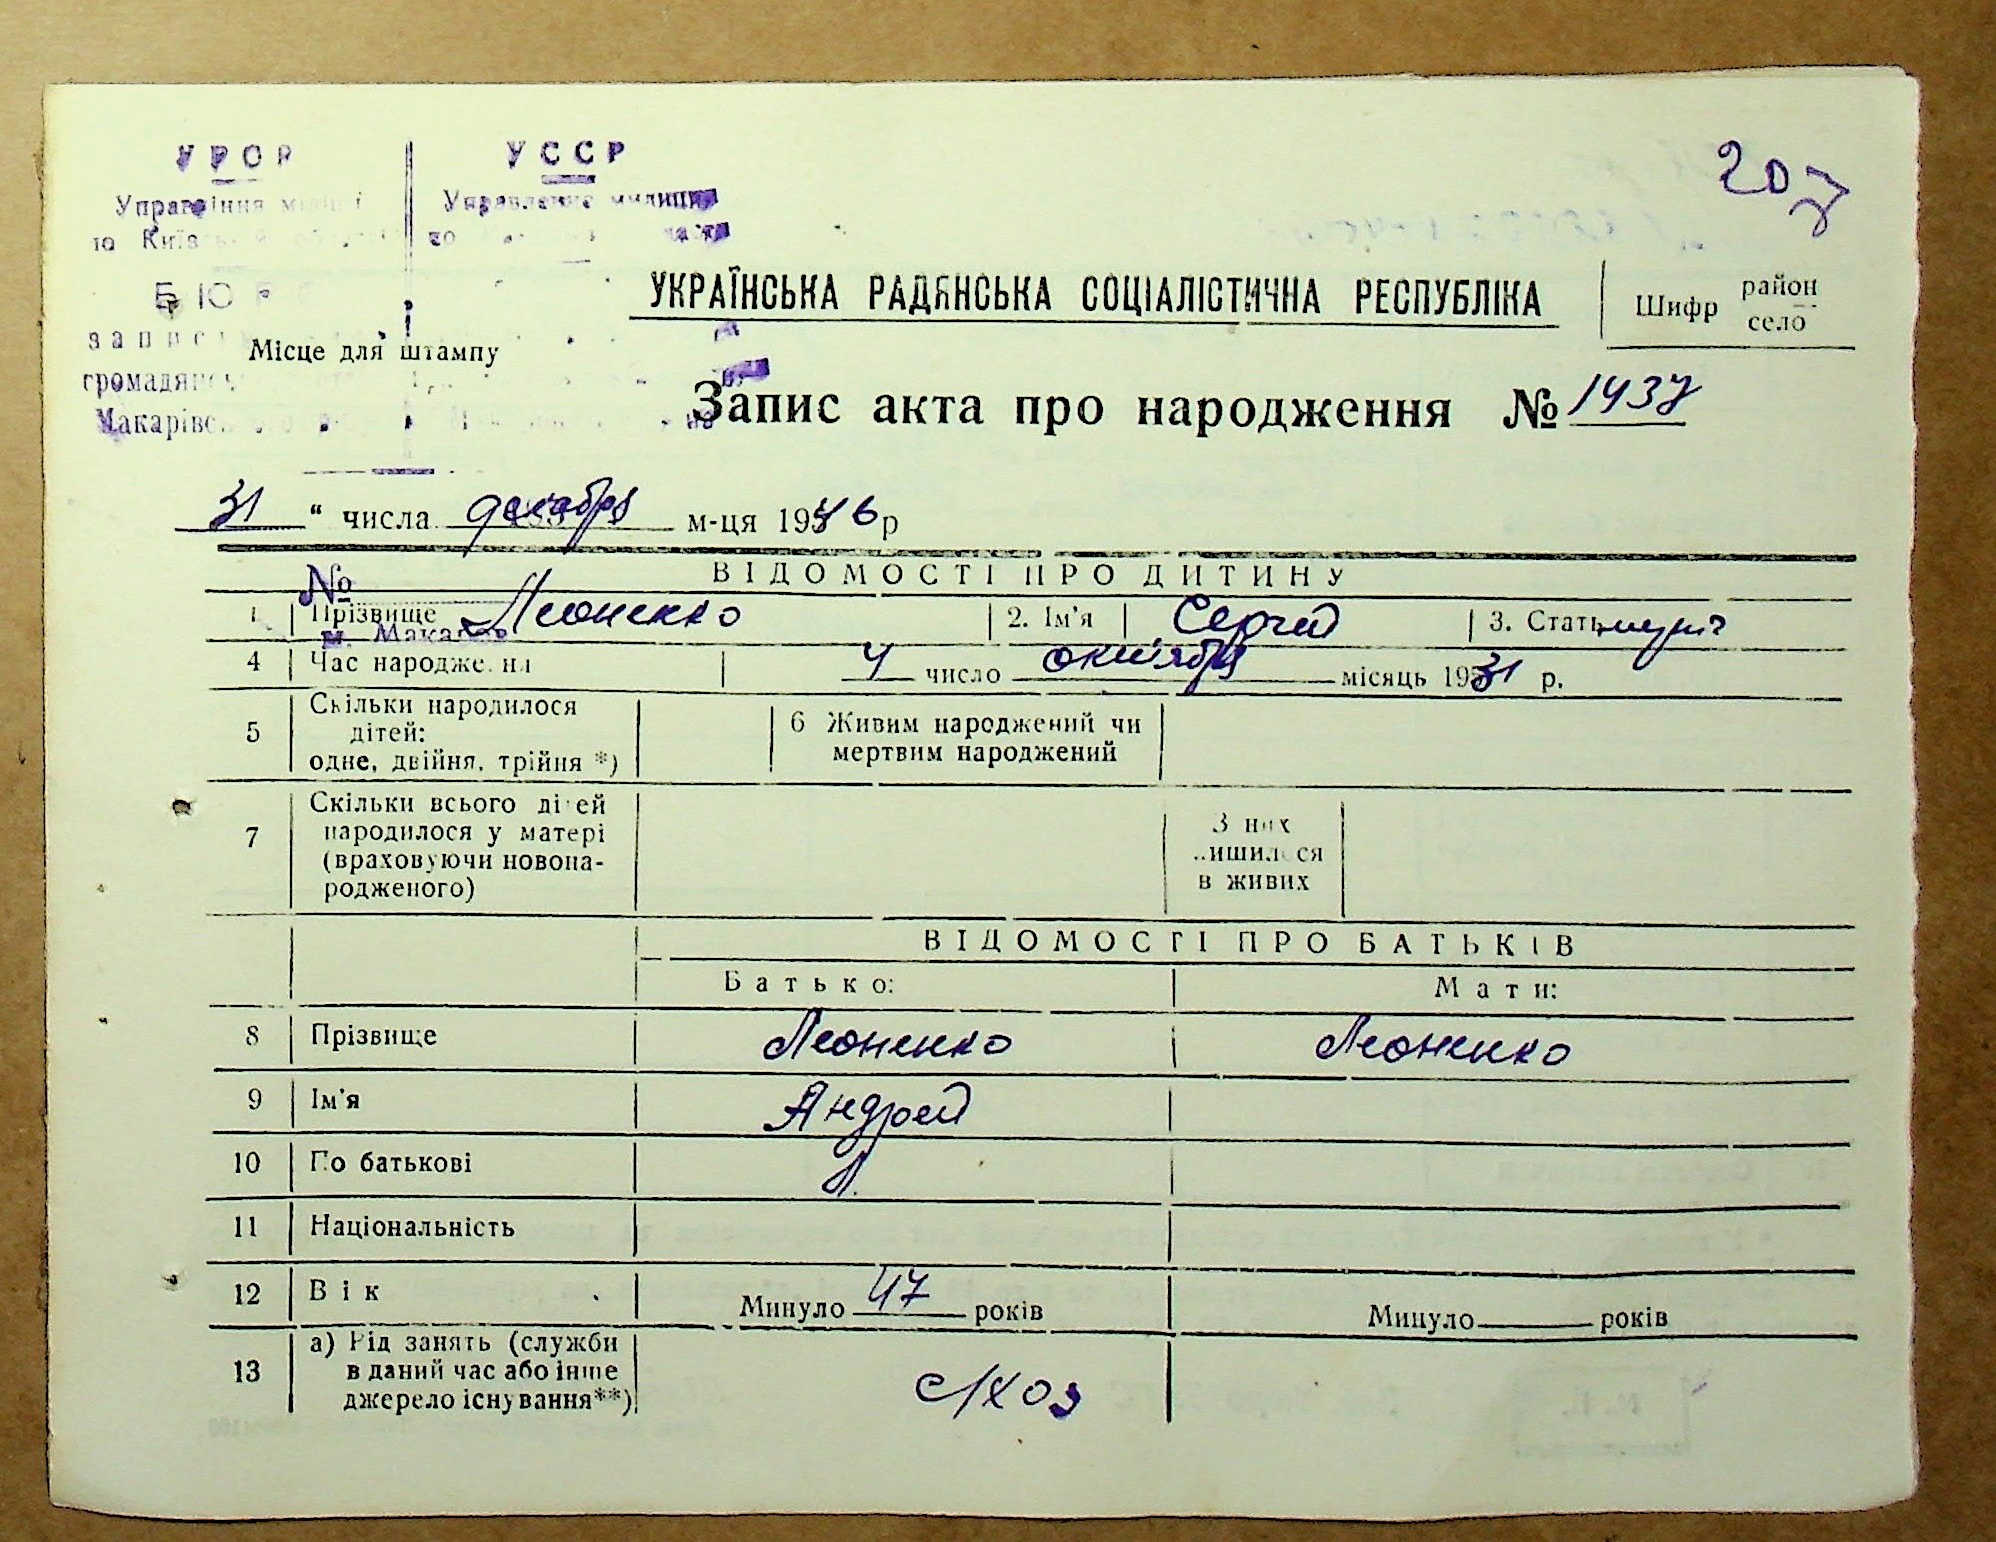 УРСР
УССР
Управління міліції
Управление милиции
по Київ
по
БЮРО
запис
Місце для штампу
громадянс
Макарівс
207
УКРАЇНСЬКА РАДЯНСЬКА СОЦІАЛІСТИЧНА РЕСПУБЛІКА
Шифр район село
Запис акта про народження № 1437
31 " числа декабря м-ця 1946 р
№
ВІДОМОСТІ ПРО ДИТИНУ
1 Прізвище Леоненко 2. Ім'я Сергей 3. Стать муж
м. Макарів
4 Час народження 4 число октября місяць 1931 р.
5 Скільки народилося дітей: одне, двійня, трійня *) 6 Живим народжений чи мертвим народжений
7 Скільки всього дітей народилося у матері (враховуючи новонародженого) З них лишилося в живих
ВІДОМОСТІ ПРО БАТЬКІВ
Батько: Мати:
8 Прізвище Леоненко Леоненко
9 Ім'я Андрей
10 По батькові Л.
11 Національність
12 Вік Минуло 47 років Минуло років
13 а) Рід занять (служби в даний час або інше джерело існування**) с/хоз